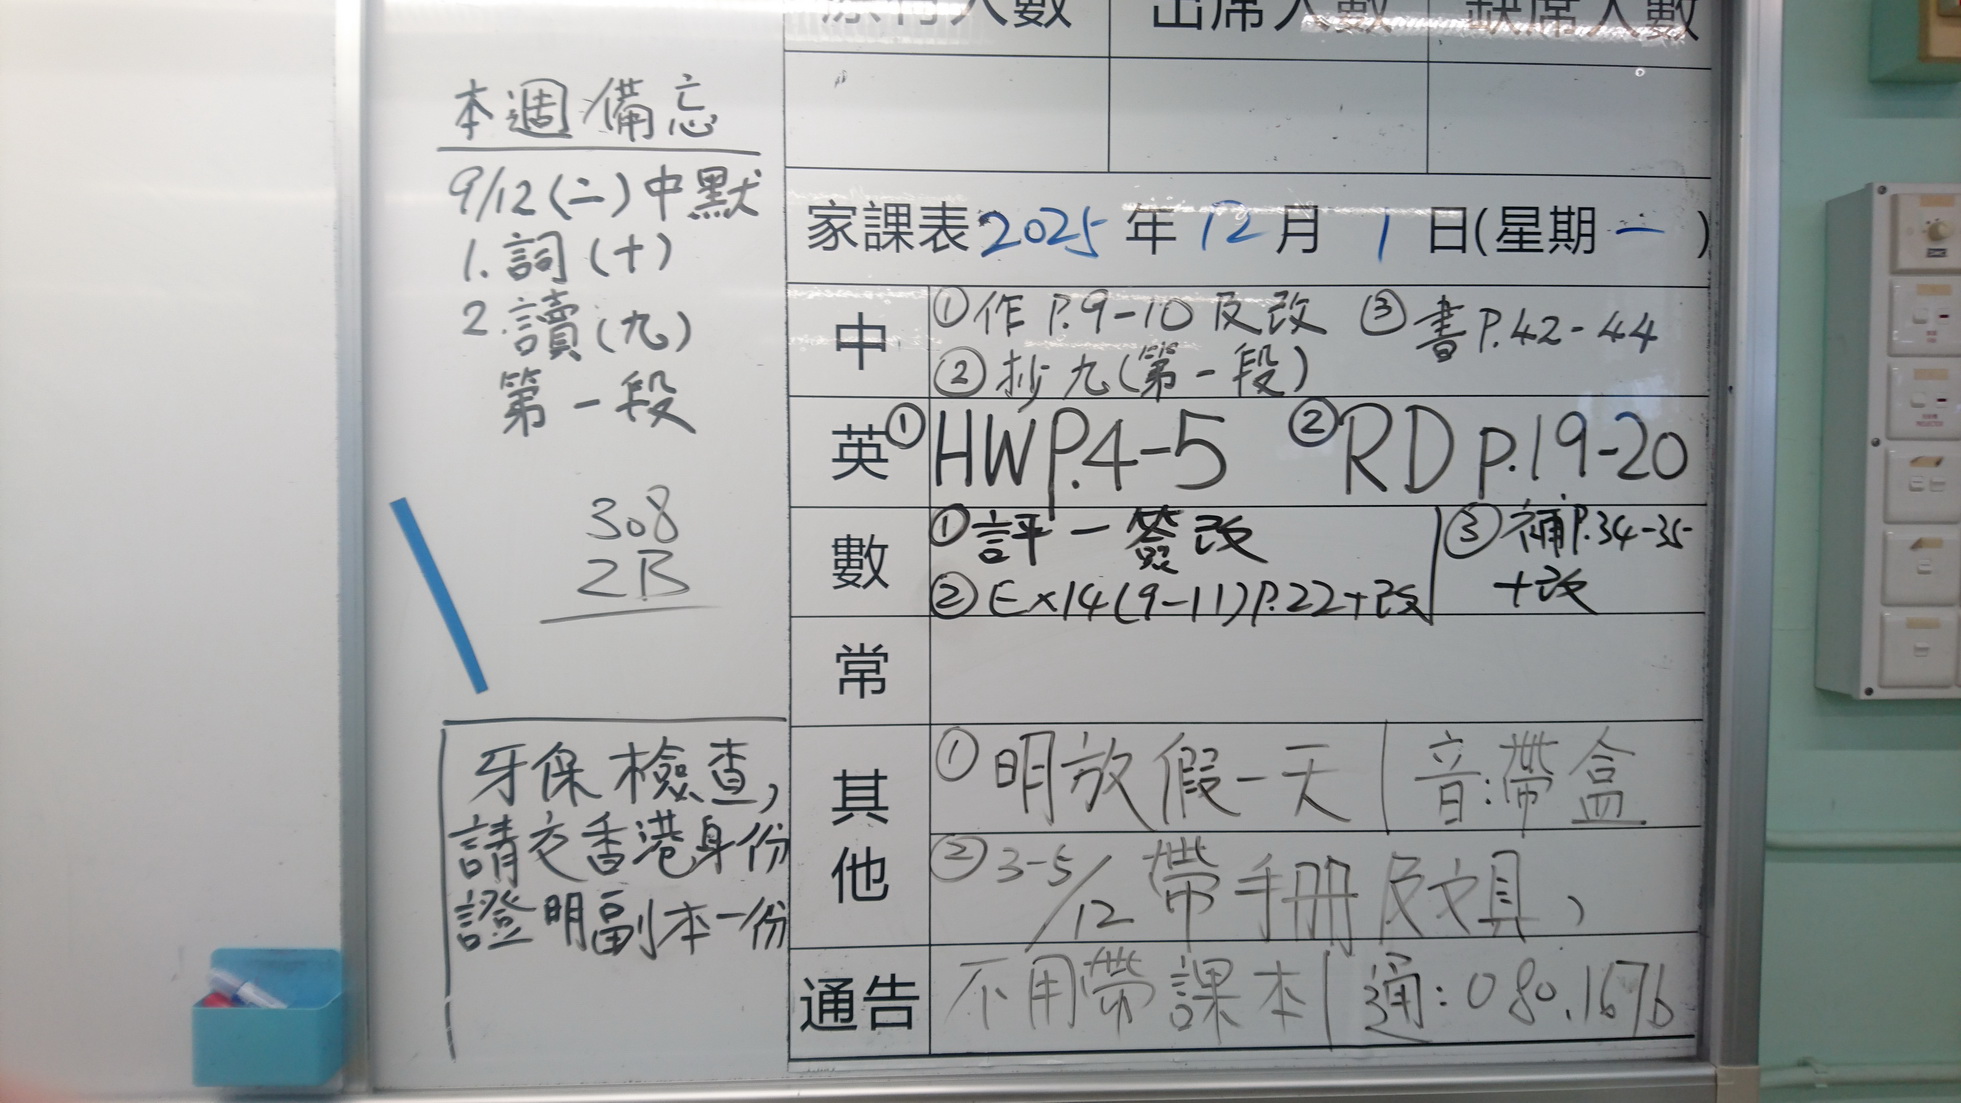 原有人數 出席人數 缺席人數
本週備忘
9/12(二)中默
1.詞(十)
2.讀(九)
第一段
308
2B
牙保檢查,
請交香港身份
證明副本一份
家課表2025年12月1日(星期一)
中 ①作P.9-10及改 ③書P.42-44
②抄九(第一段)
英 ①HWP.4-5 ②RD p.19-20
數 ①評一簽改 ③補P.34-35
②Ex14(9-11)P.22+改 +改
常
其他 ①明放假一天 音:帶盒
②3-5/12帶手冊及文具,
通告 不用帶課本 通:080.167b